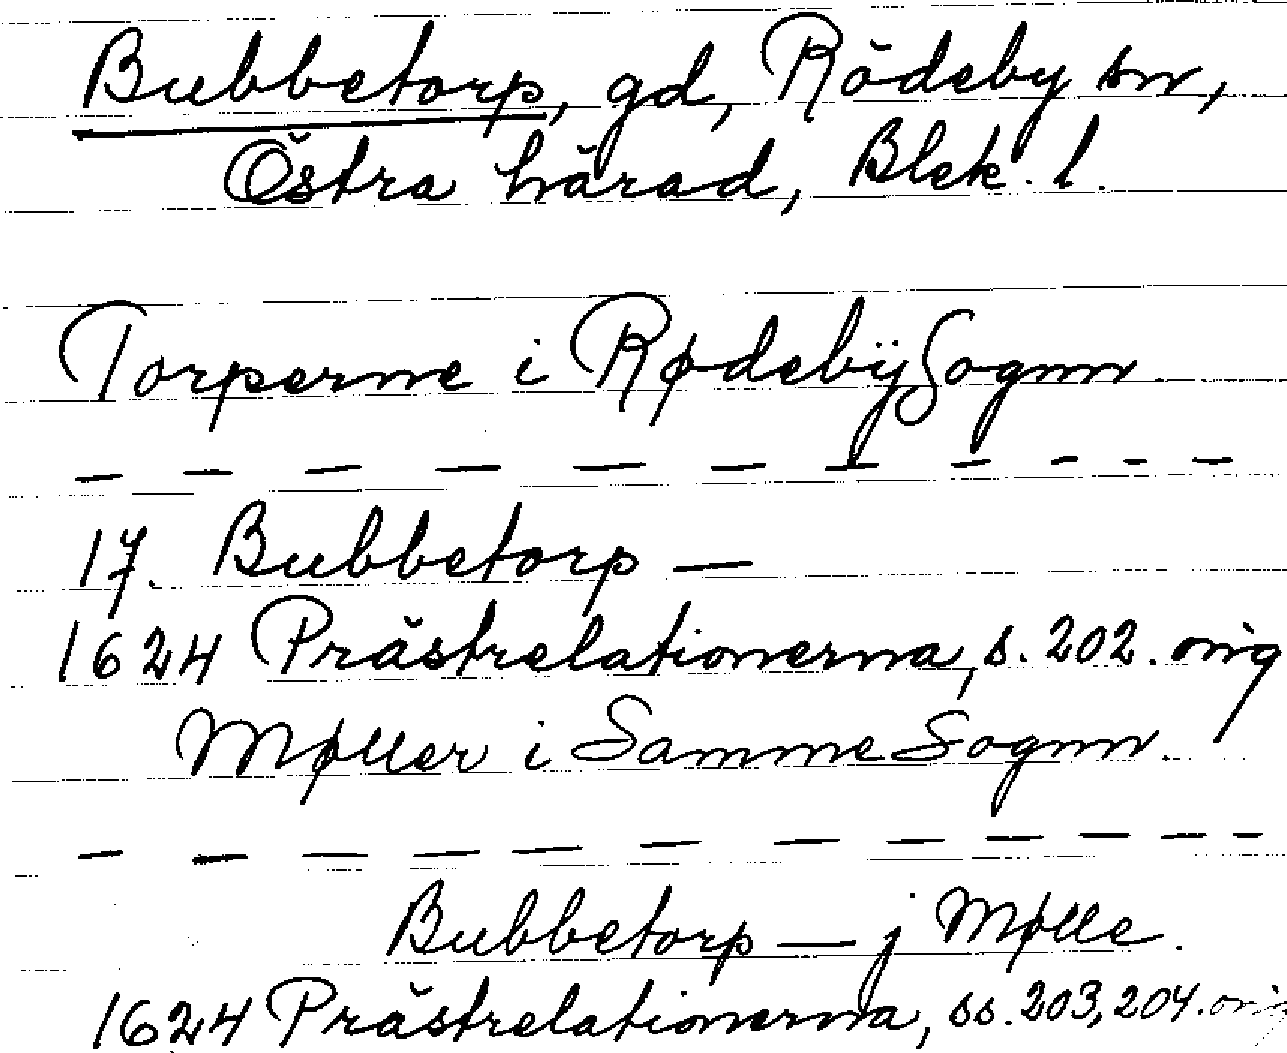 Bubbetorp, gd, Rödeby sn,
Östra härad, Blek. l.
Torperne i Rødebÿ Sognn
17. Bubbetorp —
1624 Prästrelationerna, s. 202. orig
Møller i Samme Sognn.
Bubbetorp — j Mølle.
1624 Prästrelationerna, ss. 203, 204. orig